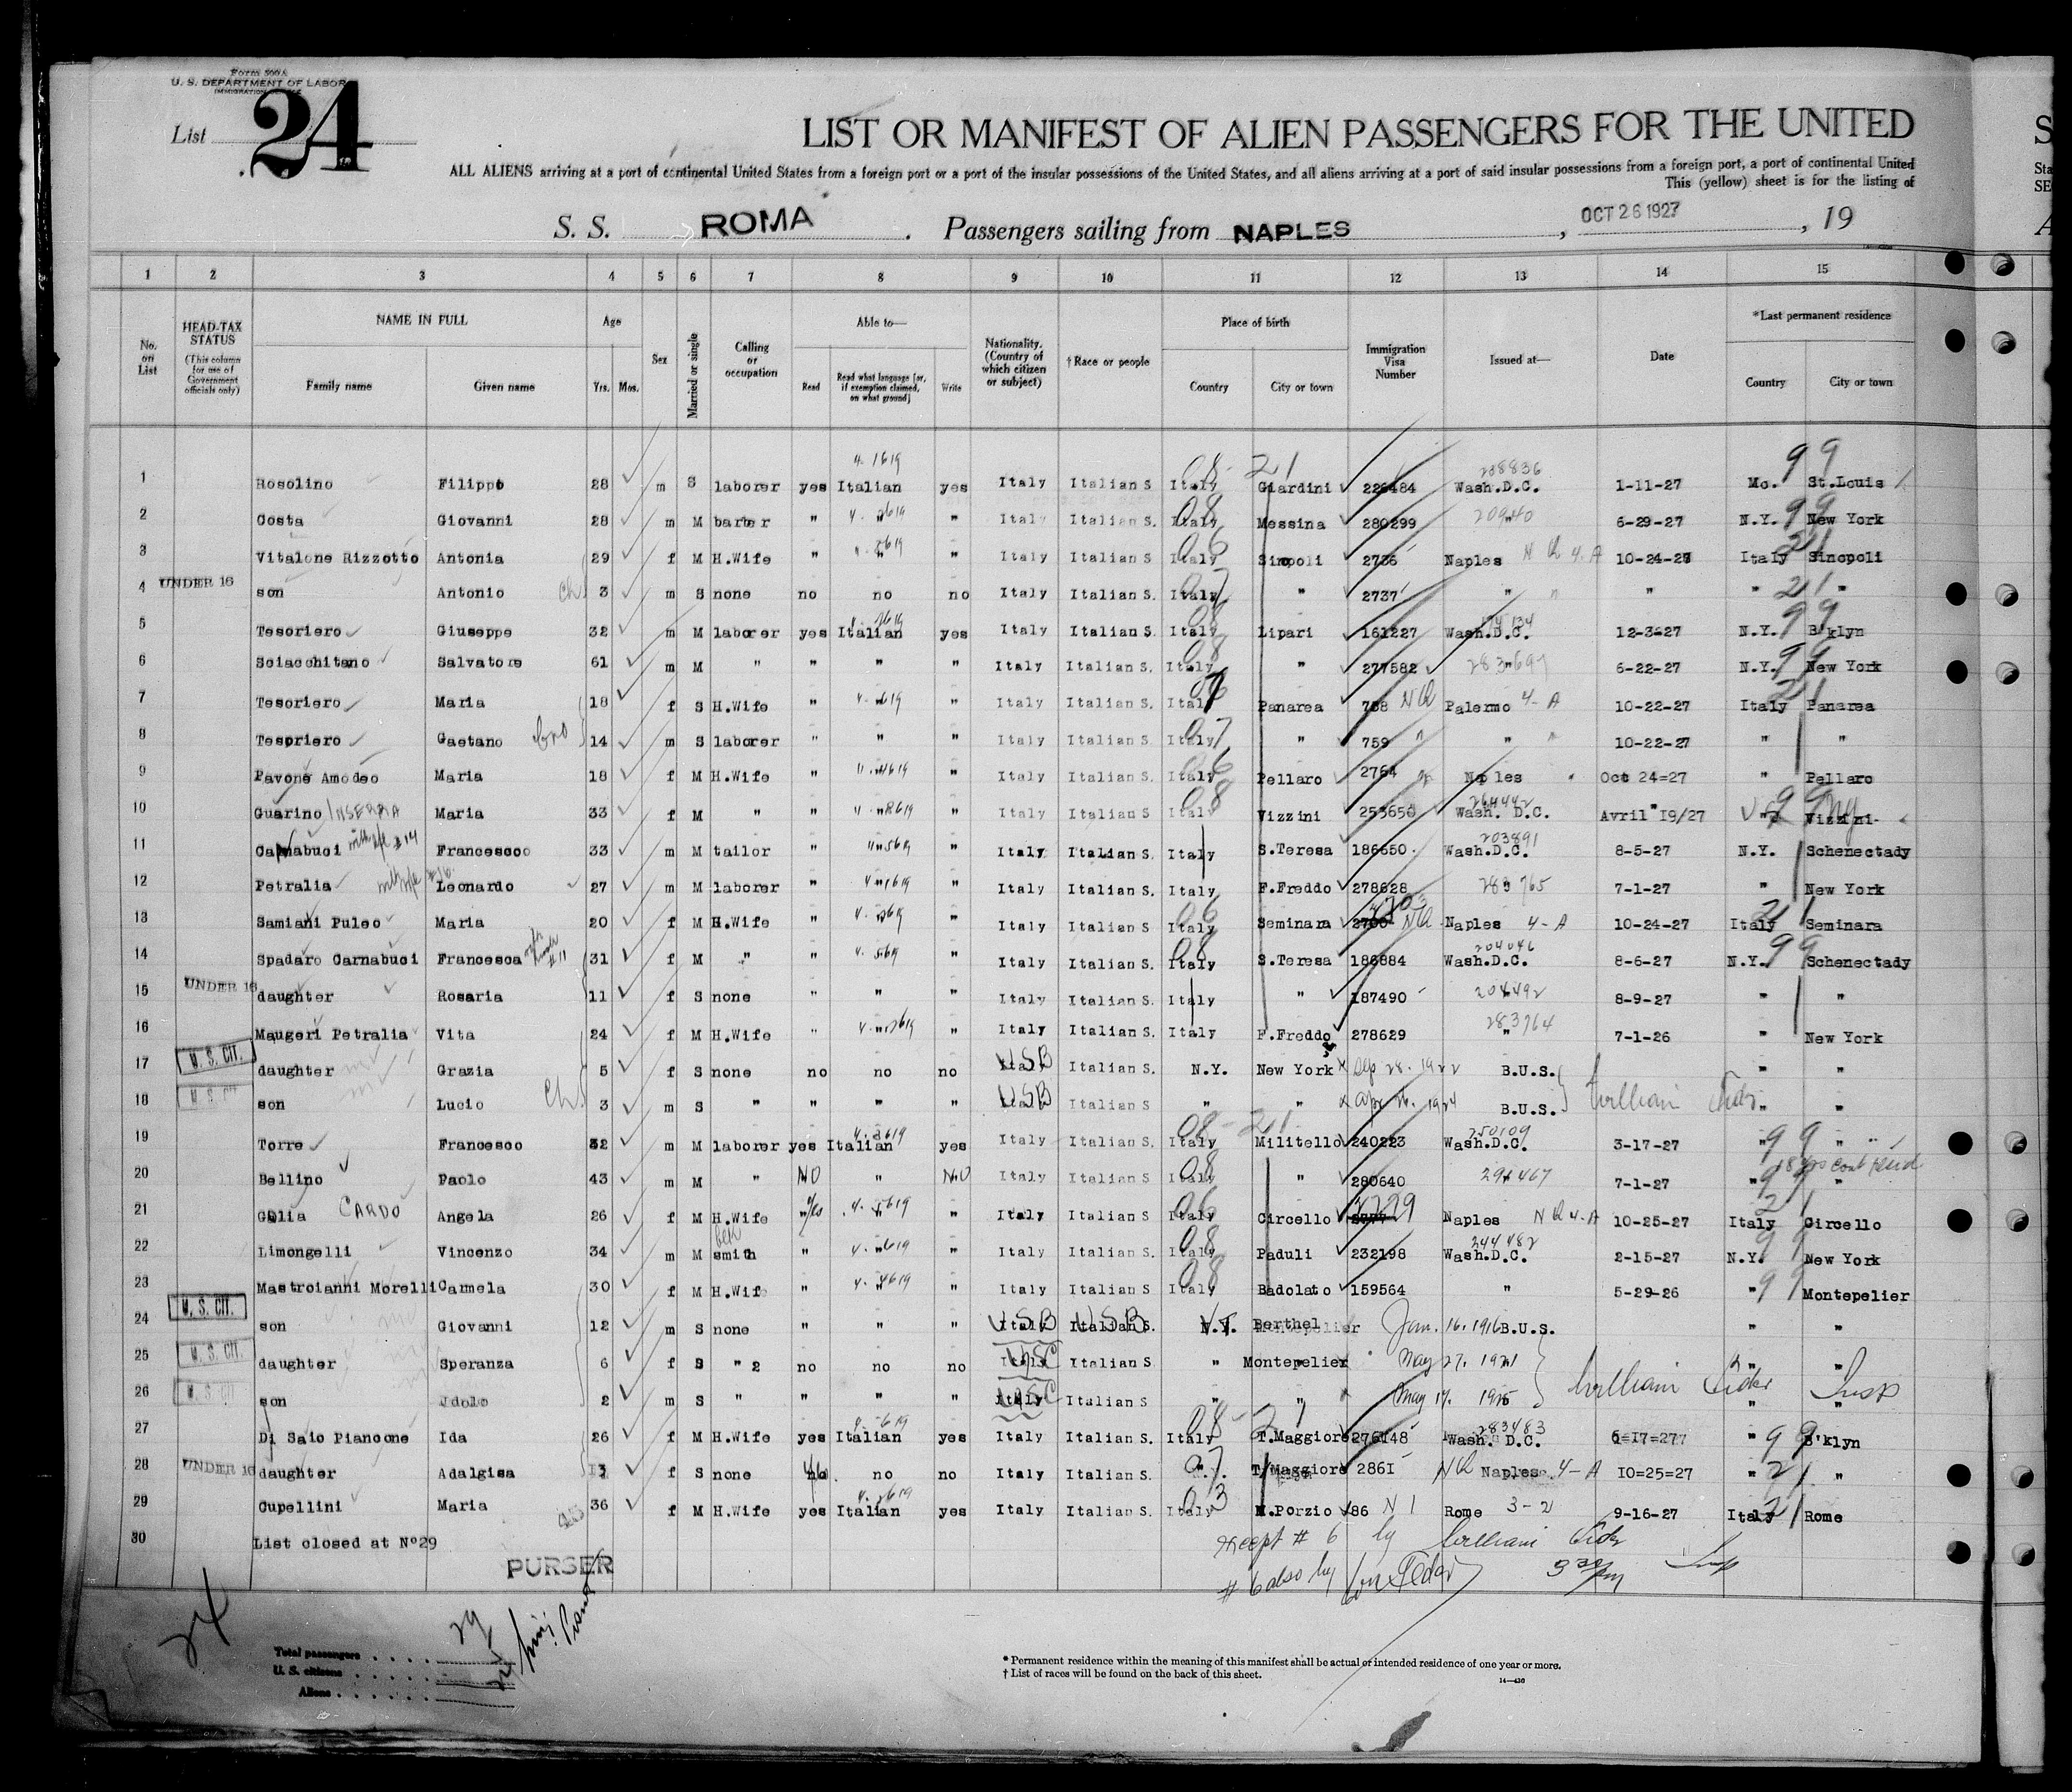 Form 500 A
U. S. DEPARTMENT OF LABOR
IMMIGRATION SERVICE
List 24
LIST OR MANIFEST OF ALIEN PASSENGERS FOR THE UNITED
ALL ALIENS arriving at a port of continental United States from a foreign port or a port of the insular possessions of the United States, and all aliens arriving at a port of said insular possessions from a foreign port, a port of continental United
This (yellow) sheet is for the listing of
S. S. ROMA . Passengers sailing from NAPLES , OCT 26 1927 , 19
1 2 3 4 5 6 7 8 9 10 11 12 13 14 15
No. on List
HEAD-TAX STATUS (This column for use of Government officials only)
NAME IN FULL Family name Given name
Age Yrs. Mos.
Sex
Married or single
Calling or occupation
Able to— Read Read what language [or, if exemption claimed, on what ground] Write
Nationality. (Country of which citizen or subject)
†Race or people
Place of birth Country City or town
Immigration Visa Number
Issued at—
Date
*Last permanent residence Country City or town
1 Rosolino Filippo 28 m S laborer yes Italian yes Italy Italian S Italy Giardini 226484 Wash.D.C. 1-11-27 Mo. St.Louis
2 Costa Giovanni 28 m M barber " " " Italy Italian S. Italy Messina 280299 20940 6-29-27 N.Y. New York
3 Vitalone Rizzotto Antonia 29 f M H.Wife " " " Italy Italian S. Italy Sinopoli 2736 Naples 4-A 10-24-27 Italy Sinopoli
4 UNDER 16 son Antonio Ch 3 m S none no no no Italy Italian S. Italy " 2737 " " " "
5 Tesoriero Giuseppe 32 m M laborer yes Italian yes Italy Italian S. Italy Lipari 161227 Wash.D.C. 12-3-27 N.Y. B'klyn
6 Sciacchitano Salvatore 61 m M " " " " Italy Italian S. Italy " 277582 6-22-27 N.Y. New York
7 Tesoriero Maria 18 f S H.Wife " " Italy Italian S. Italy Panarea 758 Palermo 4-A 10-22-27 Italy Panarea
8 Tesoriero Gaetano bro 14 m S laborer " " " Italy Italian S. Italy " 759 " 10-22-27 " "
9 Pavone Amodeo Maria 18 f M H.Wife " " " Italy Italian S. Italy Pellaro 2764 Naples Oct 24=27 " Pellaro
10 Guarino INSERRA Maria 33 f M " " " " Italy Italian S. Italy Vizzini 253650 264442 Wash. D.C. Avril 19/27 Vizzini
11 Carnabuci Francescoo 33 m M tailor " " " Italy Italian S. Italy S.Teresa 186650 203891 Wash.D.C. 8-5-27 N.Y. Schenectady
12 Petralia Leonardo 27 m M laborer " " " Italy Italian S. Italy F.Freddo 278628 283765 7-1-27 " New York
13 Samiani Puleo Maria 20 f M H.Wife " " " Italy Italian S. Italy Seminara Naples 4-A 10-24-27 Italy Seminara
14 Spadaro Carnabuci Francesca 31 f M " " " Italy Italian S. Italy S.Teresa 186884 204046 Wash.D.C. 8-6-27 N.Y. Schenectady
15 UNDER 16 daughter Rosaria 11 f S none " " " Italy Italian S. Italy " 187490 204492 8-9-27 " "
16 Maugeri Petralia Vita 24 f M H.Wife " " " Italy Italian S. Italy F.Freddo 278629 283764 7-1-26 " New York
17 U. S. CIT. daughter Grazia 5 f S none no no no USB Italian S. N.Y. New York Sep 28. 1922 B.U.S. " "
18 U. S. CIT son Lucio Ch 3 m S " " " " USB Italian S " " 1924 B.U.S. William " "
19 Torre Francesco 32 m M laborer yes Italian yes Italy Italian S Italy Militello 240223 250109 Wash.D.C. 3-17-27 " "
20 Bellino Paolo 43 m M " NO " NO Italy Italian S Italy " 280640 7-1-27 " "
21 Golia CARDO Angela 26 f M H.Wife yes " " Italy Italian S Italy Circello Naples 4-A 10-25-27 Italy Circello
22 Limongelli Vincenzo 34 m M smith " " " Italy Italian S Italy Paduli 232198 244482 Wash.D.C. 2-15-27 N.Y. New York
23 Mastroianni Morelli Carmela 30 f M H.Wife " " " Italy Italian S Italy Badolato 159564 " 5-29-26 " Montepelier
24 U. S. CIT. son Giovanni 12 m S none " " " USB USB V.T. Berthel Jan. 16. 1916 B.U.S. " "
25 U. S. CIT. daughter Speranza 6 f S " no no no USC Italian S " Montepelier May 27. 1921 " "
26 U. S. CIT son Idolo 2 m S " " " " USC Italian S " " May 17. 1925 William Insp " "
27 Di Saio Piancone Ida 26 f M H.Wife yes Italian yes Italy Italian S. Italy T.Maggiore 276148 283483 Wash. D.C. 6-17=27 " B'klyn
28 UNDER 16 daughter Adalgisa 13 f S none no no Italy Italian S. T.Maggiore 2861 Naples 4-A 10=25=27 " "
29 Cupellini Maria 36 f M H.Wife yes Italian yes Italy Italian S. Italy M.Porzio 86 Rome 3-2 9-16-27 Italy Rome
30 List closed at Nº29
except # 6 by William
# 6 also by Insp
PURSER
24
Total passengers 29
U. S. citizens
Aliens
* Permanent residence within the meaning of this manifest shall be actual or intended residence of one year or more.
† List of races will be found on the back of this sheet.
14—430